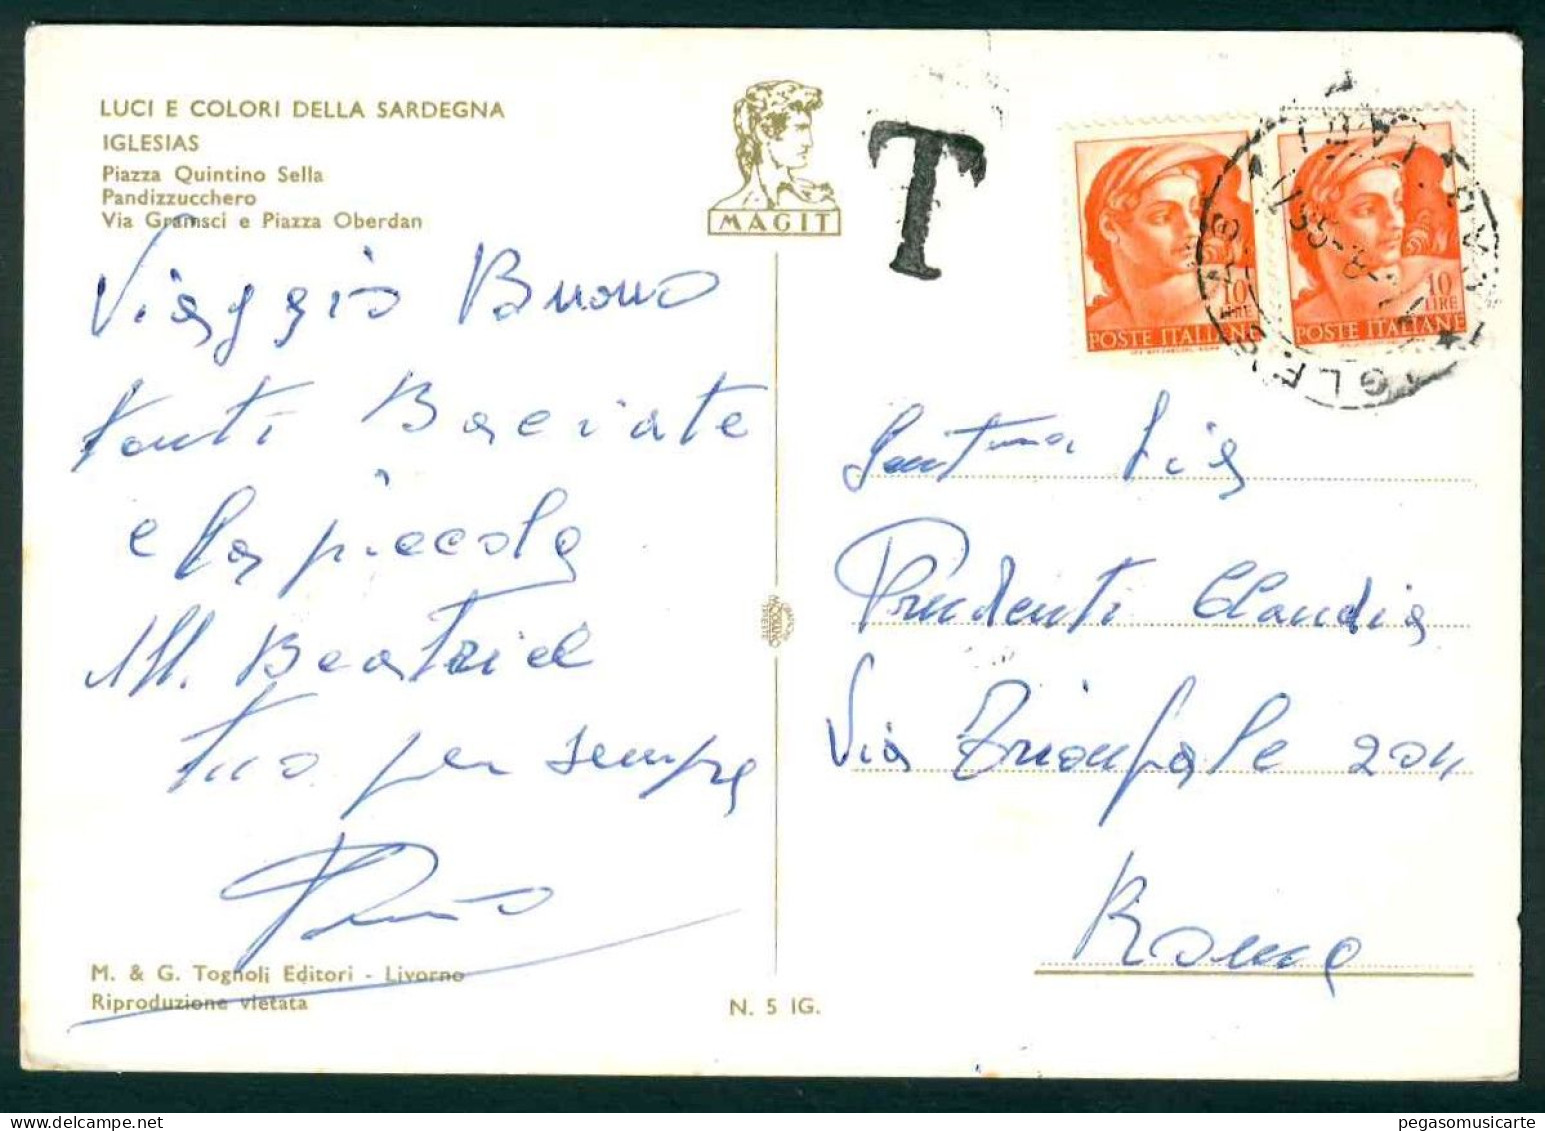 LUCI E COLORI DELLA SARDEGNA
IGLESIAS
Piazza Quintino Sella
Pandizzucchero
Via Gramsci e Piazza Oberdan
MAGIT
T
10
LIRE
POSTE ITALIANE
10
LIRE
POSTE ITALIANE
IGLESIAS
CAGLIARI
Viaggio Buono
tanti Baciate
e la piccola
M. Beatrice
tuo per sempre
Gent.ma Sig
Prudenti Claudia
Via Trionfale 204
Roma
M. & G. Tognoli Editori - Livorno
Riproduzione vietata
N. 5 IG.
pegasomusicarte.com